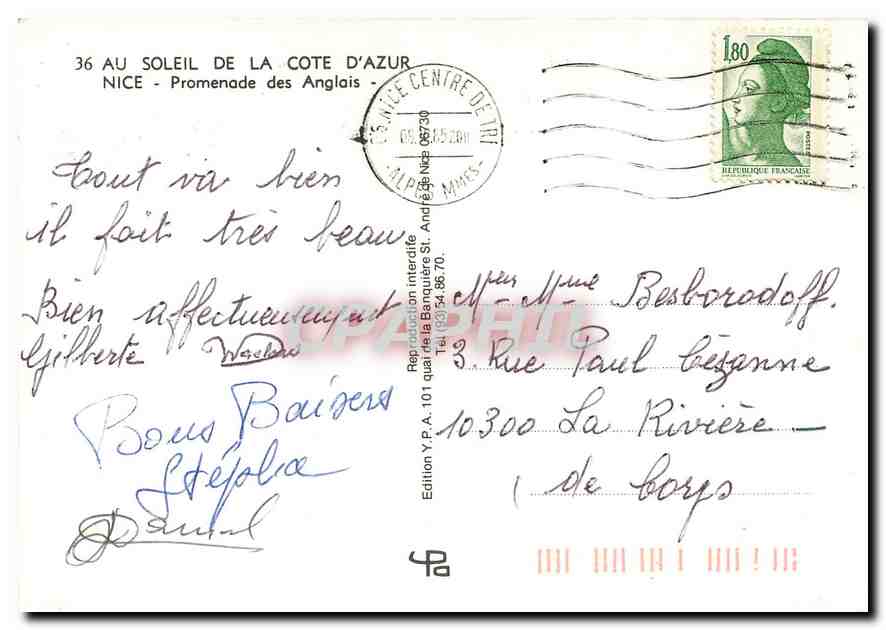 36 AU SOLEIL DE LA COTE D'AZUR
NICE - Promenade des Anglais -
NICE CENTRE DE TRI
ALPES MMES
1,80
POSTES
REPUBLIQUE FRANÇAISE
Tout va bien
il fait très beau.
Bien affectueusement
Gilberte
Bons Baisers
Stépha
Daniel
Edition Y.P.A. 101 quai de la Banquière St. André de Nice 06730
Reproduction interdite
Tél (93) 54.86.70.
Mr Mme Besborodoff.
3. Rue Paul Cézanne
10300 La Rivière
de Corps
CPAPHIL